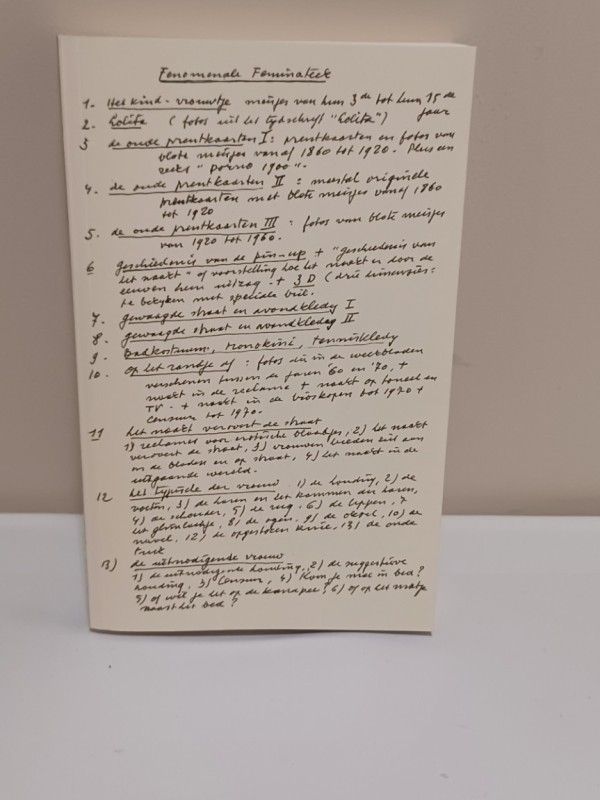 Fenomenale Feminateek
1. Het kind-vrouwtje meisjes van hun 3de tot hun 15de
jaar
2. Lolita (fotos uit het tijdschrift "Lolita")
3 de oude prentkaarten I: prentkaarten en fotos van
blote meisjes vanaf 1860 tot 1920. Plus een
reeks "porno 1900".
4. de oude prentkaarten II: meestal originele
prentkaarten met blote meisjes vanaf 1860
tot 1920
5. de oude prentkaarten III: fotos van blote meisjes
van 1920 tot 1960.
6 geschiedenis van de pin-up + "geschiedenis van
het naakt" of voorstelling hoe het naakt er door de
eeuwen heen uitzag. + 3D (drie dimensies:
te bekijken met speciale bril.
7. gewaagde straat en avondkledij I
8. gewaagde straat en avondkledij II
9. Badkostuums, monokini, tenniskledij
10. op het randje af: fotos die in de weekbladen
verschenen tussen de jaren '60 en '70, +
naakt in de reclame + naakt op toneel en
TV. + naakt in de bioskopen tot 1970 +
censuur tot 1970.
11 het naakt verovert de straat
1) reclames voor erotische blaadjes, 2) het naakt
verovert de straat, 3) vrouwen bieden zich aan
in de bladen en op straat, 4) het naakt in de
uitgaande wereld.
12 het typische der vrouw 1) de houding, 2) de
voeten, 3) de haren en het kammen der haren,
4) de schouder, 5) de rug. 6) de lippen, 7
het glimlachje, 8) de ogen. 9) de oksel, 10) de
navel. 12) de opgestoken knie. 13) de oude
truck
13) de uitnodigende vrouw
1) de uitnodigende houding, 2) de suggestieve
houding, 3) Censuur, 4) Kom je mee in bed?
5) of wil je het op de kanapee? 6) of op het matje
naast het bed?